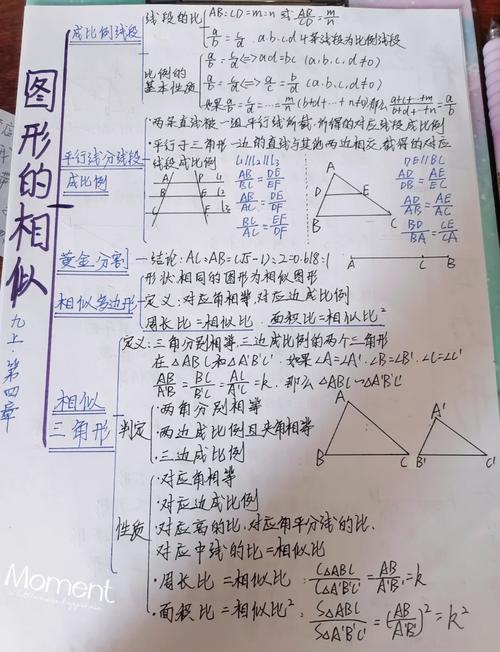 图形的相似
九上·第四章
成比例线段
线段的比
AB:CD=m:n 或 AB/CD=m/n
a/b=c/d a.b.c.d 4条线段为比例线段
比例的
基本性质
a/b=c/d⇔ad=bc (a,b,c,d≠0)
a/b=c/d⇔a/c=b/d (a,b,c,d≠0)
如果a/b=c/d=…=m/n(b+d+…+n≠0)那么a+c+…+m/b+d+…+n=a/b
平行线分线段
成比例
·两条直线被一组平行线所截,所得的对应线段成比例
·平行于三角形一边的直线与其他两边相交,截得的对应
线段成比例
l1//l2//l3
A D l1
B E l2
C F l3
AB/BC=DE/EF
AB/AC=DE/DF
BC/AC=EF/DF
A
D E
B C
DE//BC
AD/DB=AE/EC
AD/AB=AE/AC
BD/BA=CE/CA
黄金分割
结论:AC:AB=(√5-1):2≈0.618:1
A C B
相似多边形
形状相同的图形为相似图形
定义:对应角相等,对应边成比例
周长比=相似比.面积比=相似比²
相似
三角形
定义:三角分别相等,三边成比例的两个三角形
在△ABC和△A'B'C'.如果∠A=∠A'.∠B=∠B'.∠C=∠C'
AB/A'B'=BC/B'C'=AC/A'C'=k.那么△ABC∽△A'B'C'
判定
·两角分别相等
·两边成比例且夹角相等
·三边成比例
A
B C
A'
B' C'
性质
·对应角相等
·对应边成比例
·对应高的比,对应角平分线的比.
对应中线的比=相似比
·周长比=相似比:C△ABC/C△A'B'C'=AB/A'B'=k
·面积比=相似比²:S△ABC/S△A'B'C'=(AB/A'B')²=k²
Moment